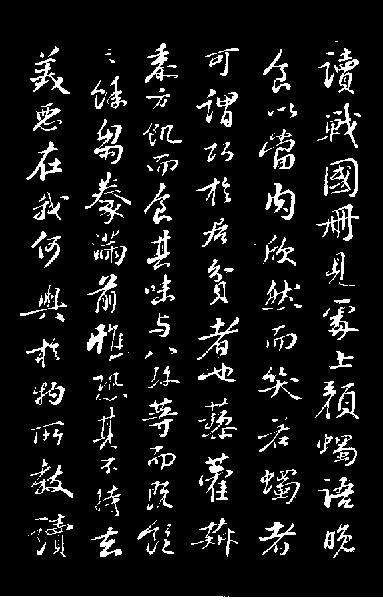 讀戰國冊見處士顏蠋語晚
食以當肉欣然而笑若蠋者
可謂巧於居貧者也藜藿
黍方飢而食其味与八珍等而既飽
之餘芻豢滿前惟恐其不持去
美惡在我何與於物所教讀